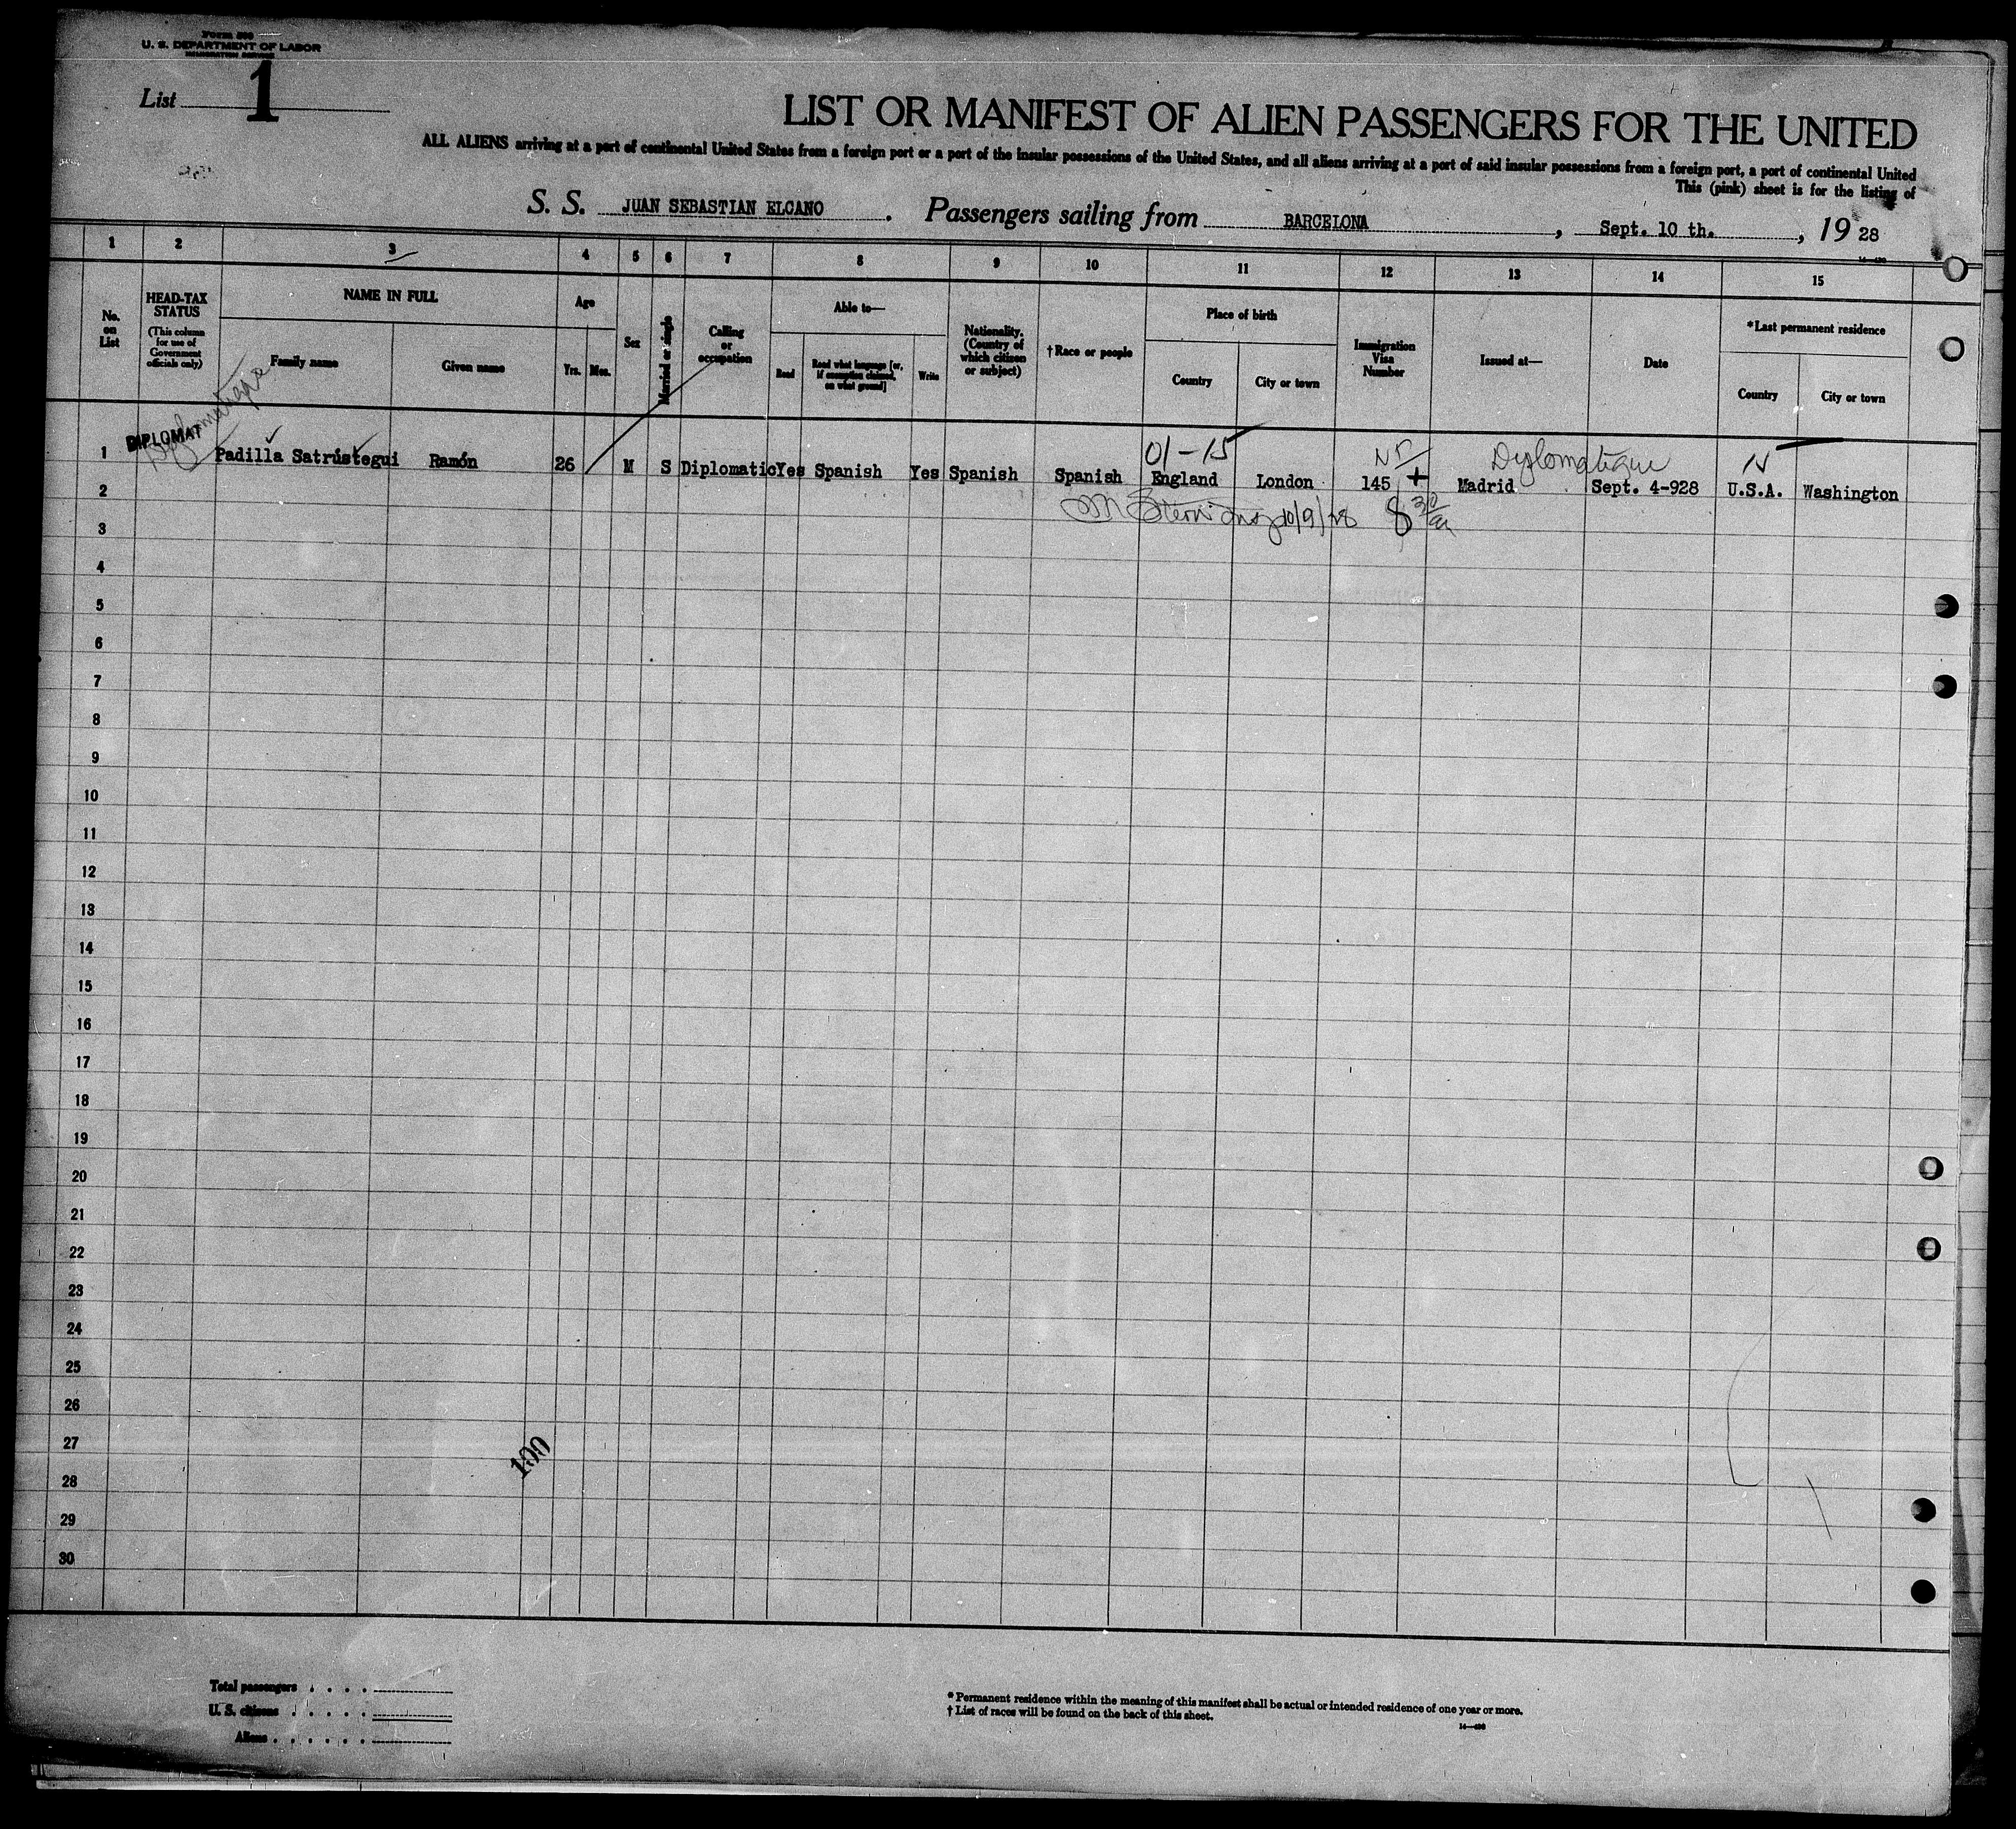 Form 500
U. S. DEPARTMENT OF LABOR
IMMIGRATION SERVICE
List 1
LIST OR MANIFEST OF ALIEN PASSENGERS FOR THE UNITED
ALL ALIENS arriving at a port of continental United States from a foreign port or a port of the insular possessions of the United States, and all aliens arriving at a port of said insular possessions from a foreign port, a port of continental United
This (pink) sheet is for the listing of
S. S. JUAN SEBASTIAN ELCANO . Passengers sailing from BARCELONA , Sept. 10 th. , 19 28
1 2 3 4 5 6 7 8 9 10 11 12 13 14 15
No. on List
HEAD-TAX STATUS (This column for use of Government officials only)
NAME IN FULL
Family name
Given name
Age
Yrs. Mos.
Sex
Married or single
Calling or occupation
Able to—
Read
Read what language [or, if exemption claimed, on what ground]
Write
Nationality. (Country of which citizen or subject)
†Race or people
Place of birth
Country
City or town
Immigration Visa Number
Issued at—
Date
*Last permanent residence
Country
City or town
Diplomatique
DIPLOMAT
01-15
Diplomatique
1 Padilla Satrústegui Ramón 26 M S Diplomatic Yes Spanish Yes Spanish Spanish England London 145 + Madrid Sept. 4-928 U.S.A. Washington
2
10/9/28 8 30/a
3
4
5
6
7
8
9
10
11
12
13
14
15
16
17
18
19
20
21
22
23
24
25
26
27
100
28
29
30
Total passengers
U. S. citizens
Aliens
* Permanent residence within the meaning of this manifest shall be actual or intended residence of one year or more.
† List of races will be found on the back of this sheet.